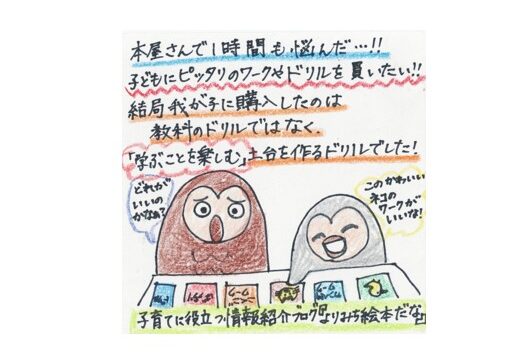 本屋さんで1時間も悩んだ…!!
子どもにピッタリのワークやドリルを買いたい!!
結局我が子に購入したのは
教科のドリルではなく、
「学ぶことを楽しむ」土台を作るドリルでした!
どれが
いいの
かなぁ?
このかわいい
ネコの
ワークが
いいな!
子育てに役立つ情報紹介ブログ『よりみち絵本だな』